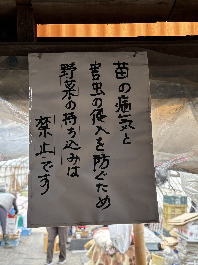 苗の病気と
害虫の侵入を防ぐため
野菜の持ち込みは
禁止です